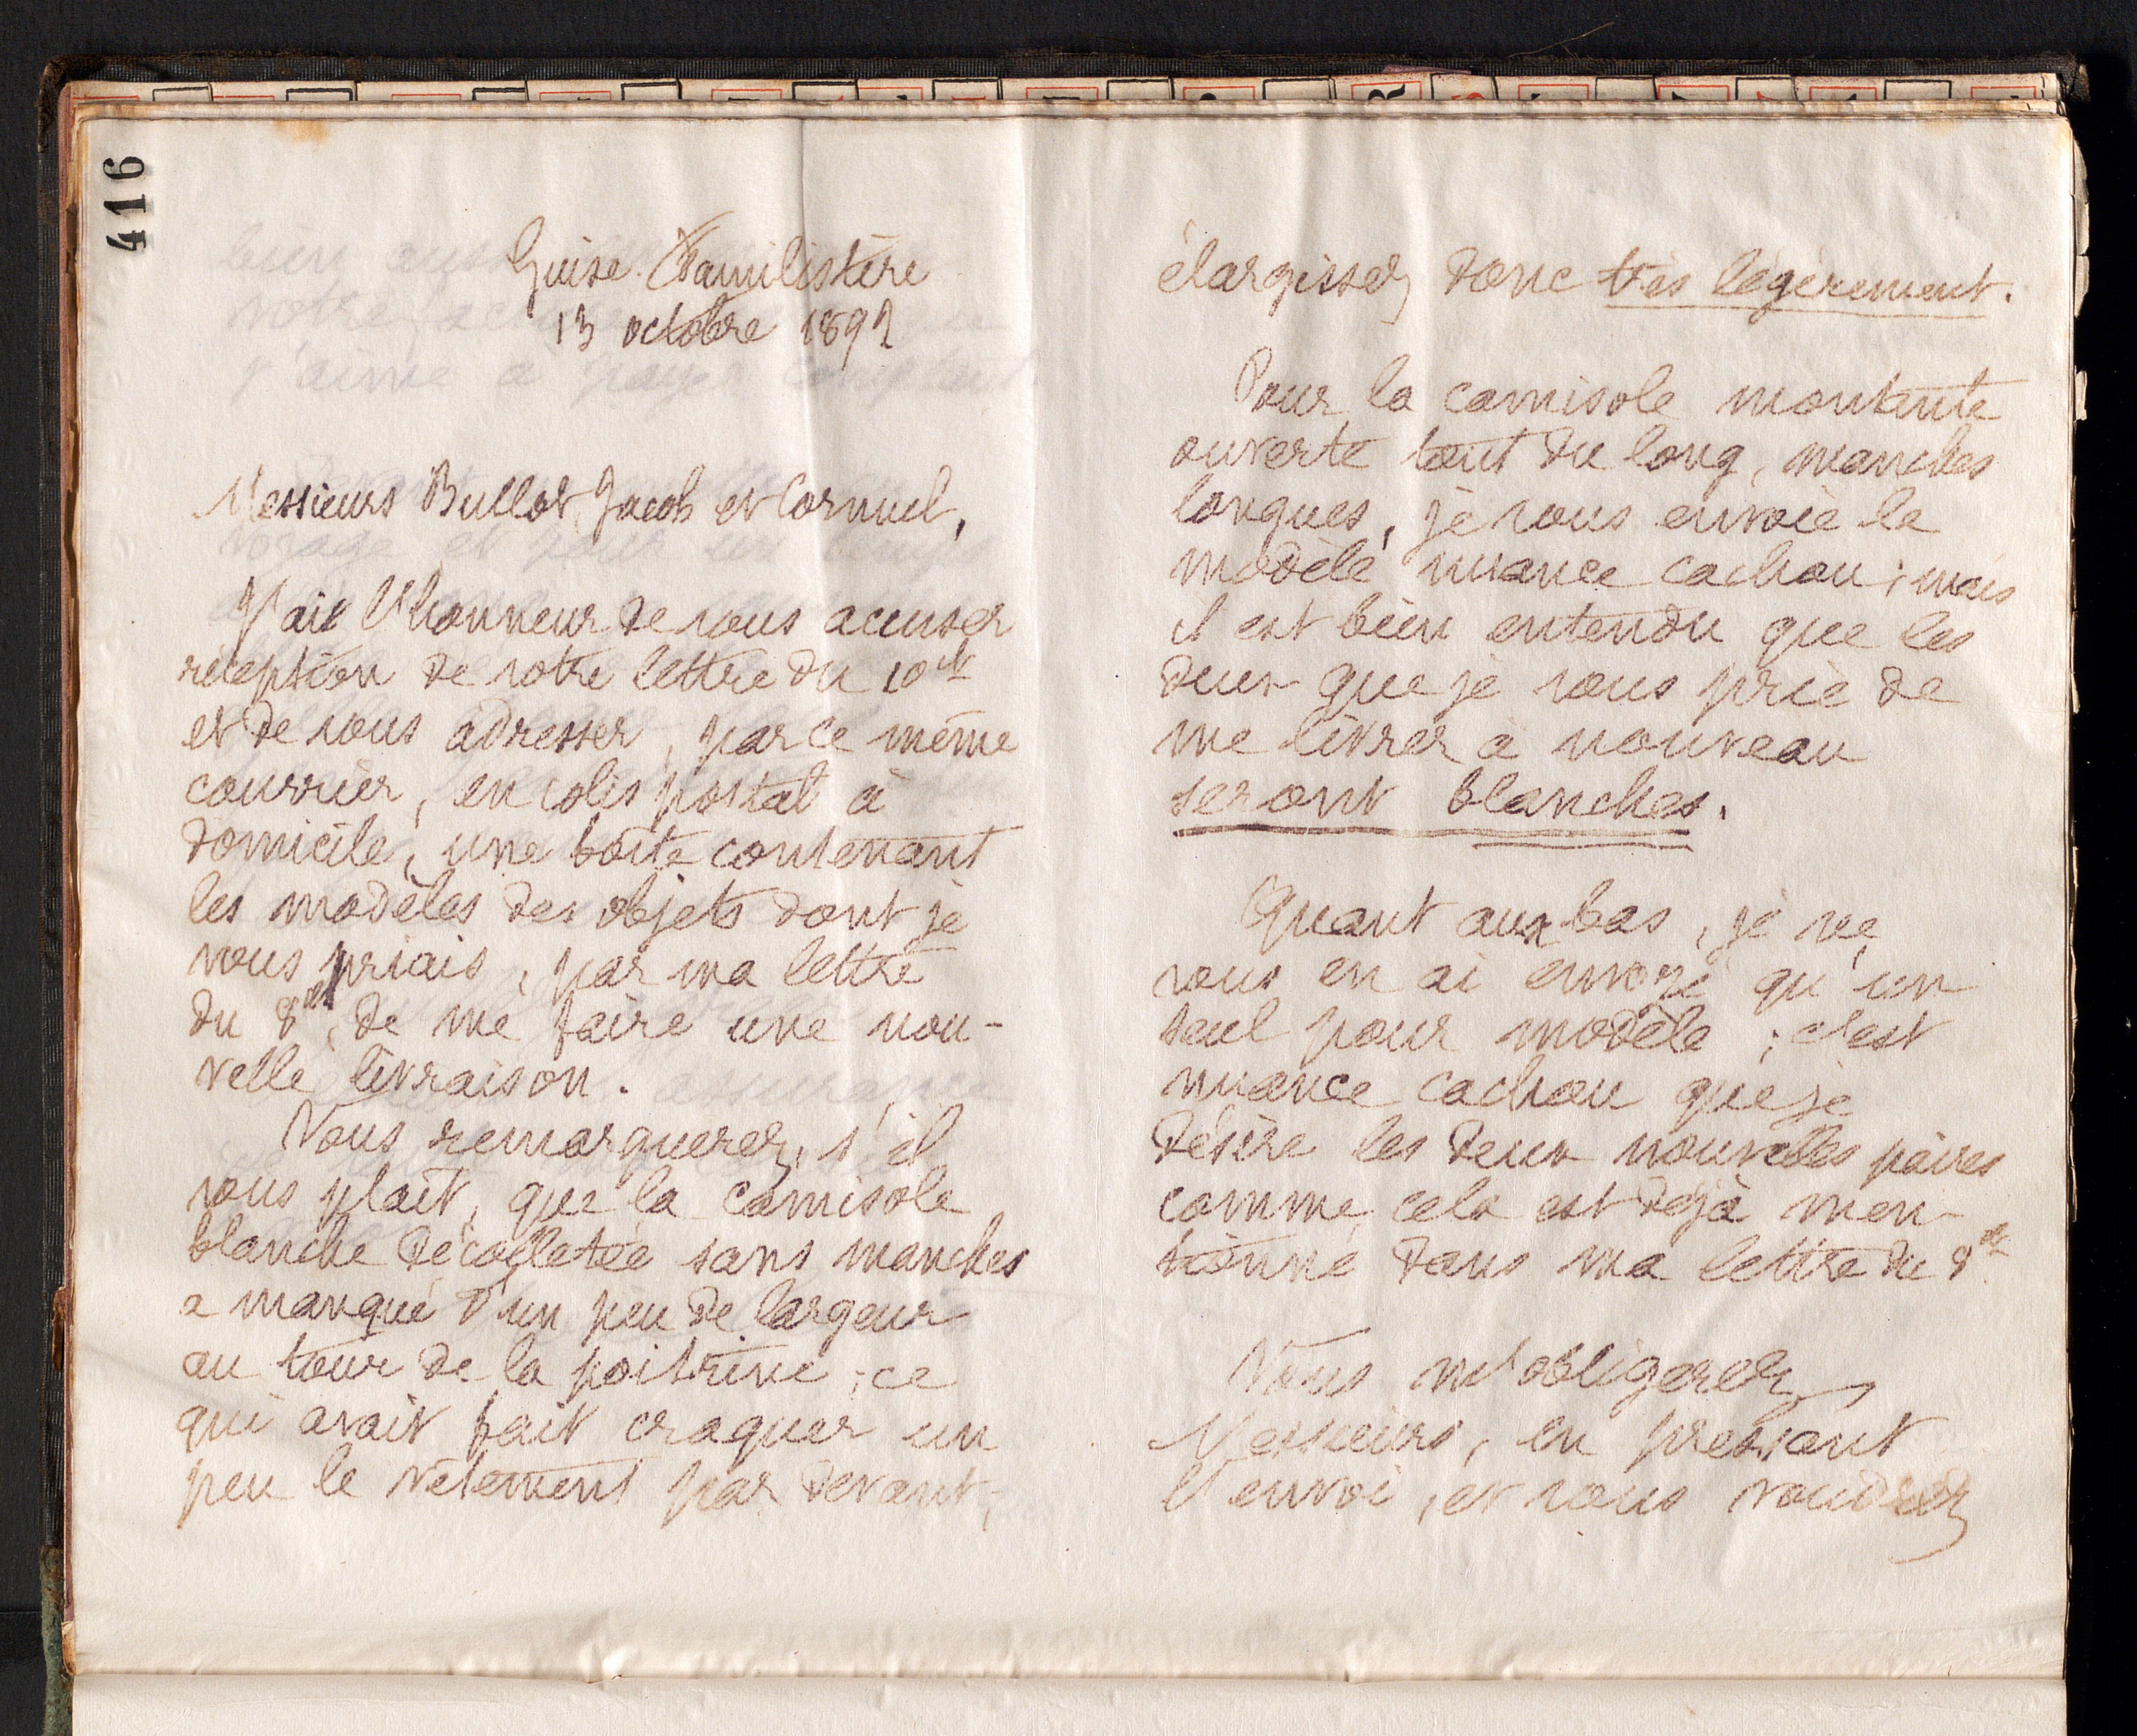 416
Guise. Familistère
13 octobre 1892
Messieurs Bullot, Jacob et Cornuel,
J'ai l'honneur de vous accuser
réception de votre lettre du 10 ct
et de vous adresser, par ce même
courrier, en colis postal à
domicile, une boîte contenant
les modèles des objets dont je
vous priais, par ma lettre
du 8 ct, de me faire une nou-
velle livraison.
Vous remarquerez, s'il
vous plaît, que la camisole
blanche décolletée sans manches
a manqué d'un peu de largeur
au tour de la poitrine ; ce
qui avait fait craquer un
peu le vêtement par devant ;
élargissez donc très légèrement.
Pour la camisole montante
ouverte tout du long, manches
longues, je vous envoie le
modèle nuance cachou ; mais
il est bien entendu que les
deux que je vous prie de
me livrer à nouveau
seront blanches.
Quant aux bas, je ne
vous en ai envoyé qu'un
seul pour modèle ; c'est
nuance cachou que je
désire les deux nouvelles paires
comme cela est déjà men-
tionné dans ma lettre du 8 ct.
Vous m'obligerez,
Messieurs, en pressant
l'envoi, et vous voudrez